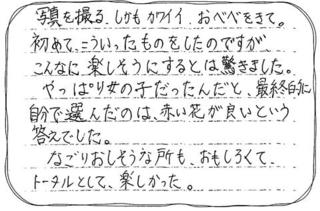 写真を撮る、しかもカワイイ、おべべをきて。
初めて、こういったものをしたのですが、
こんなに、楽しそうにするとは驚きました。
やっぱり女の子だったんだと、最終的に
自分で選んだのは、赤い花が良いという
答えでした。
なごりおしそうな所も、おもしろくて、
トータルとして、楽しかった。